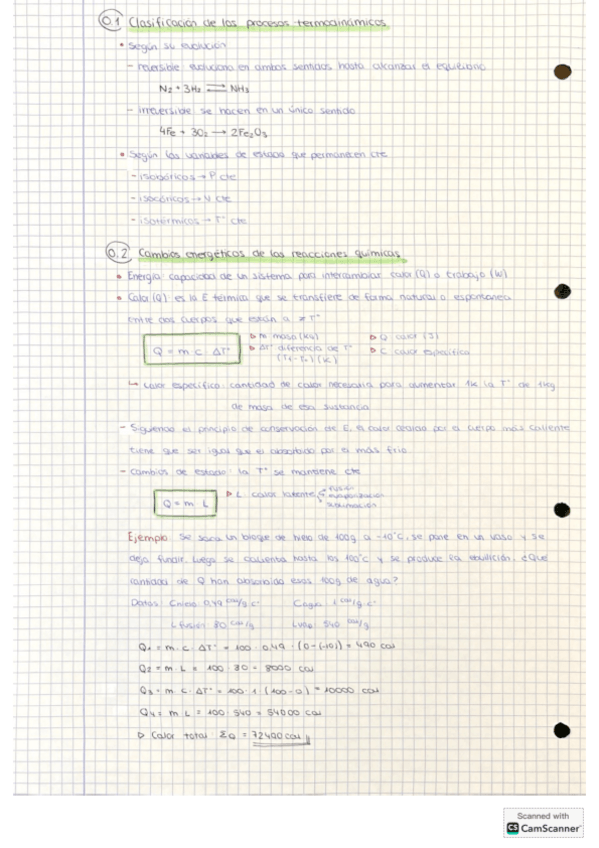 0.1 Clasificación de los procesos termodinámicos
• Según su evolución
- reversible: evoluciona en ambos sentidos hasta alcanzar el equilibrio
N₂ + 3H₂ ⇌ NH₃
- irreversible: se hacen en un único sentido
4Fe + 3O₂ → 2Fe₂O₃
• Según las variables de estado que permanecen cte
- isobáricos → P cte
- isocóricos → V cte
- isotérmicos → Tª cte
0.2 Cambios energéticos de las reacciones químicas
• Energía: capacidad de un sistema para intercambiar calor (Q) o trabajo (W)
• Calor (Q): es la E térmica que se transfiere de forma natural o espontánea
entre dos cuerpos que están a ≠ Tª
Q = m · c · ΔTª
▷ m masa (kg) ▷ Q calor (J)
▷ ΔTª diferencia de Tª ▷ C calor específico
(Tf - To) (K)
↳ Calor específico: cantidad de calor necesaria para aumentar 1K la Tª de 1kg
de masa de esa sustancia
- Siguiendo el principio de conservación de E, el calor cedido por el cuerpo más caliente
tiene que ser igual que el absorbido por el más frío
- Cambios de estado: la Tª se mantiene cte
Q = m · L
▷ L calor latente fusión
vaporización
sublimación
Ejemplo: Se saca un bloque de hielo de 100g a -10°C, se pone en un vaso y se
deja fundir. Luego se calienta hasta los 100°C y se produce la ebullición. ¿Qué
cantidad de Q han absorbido esos 100g de agua?
Datos: Chielo 0,49 cal/g·Cº Cagua 1 cal/g·Cº
Lfusión 80 cal/g Lvap 540 cal/g
Q₁ = m · c · ΔTª = 100 · 0,49 · (0-(-10)) = 490 cal
Q₂ = m · L = 100 · 80 = 8000 cal
Q₃ = m · c · ΔTª = 100 · 1 · (100 - 0) = 10000 cal
Q₄ = m · L = 100 · 540 = 54000 cal
▷ Calor total: ΣQ = 72490 cal
Scanned with
CS CamScanner